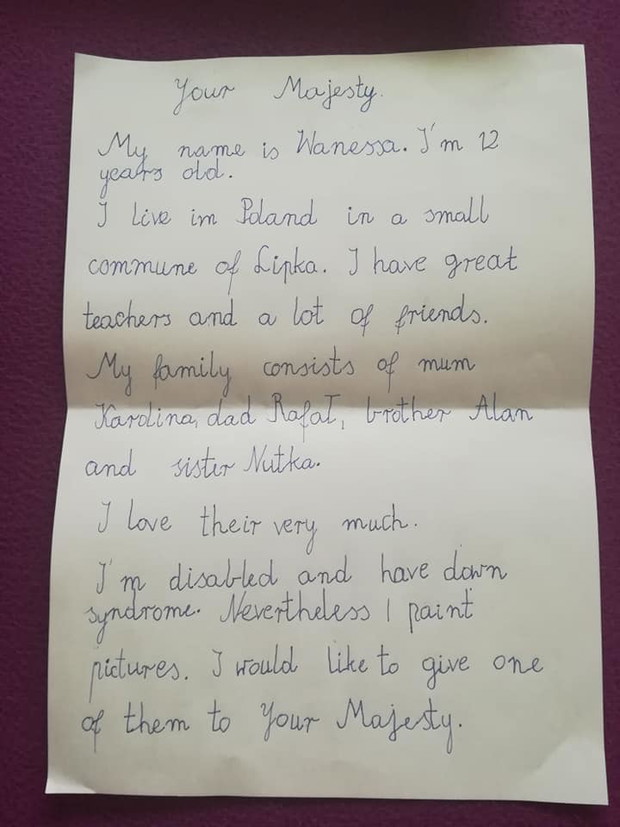 Your Majesty.
My name is Wanessa. I'm 12
years old.
I live im Poland in a small
commune of Lipka. I have great
teachers and a lot of friends.
My family consists of mum
Karolina, dad Rafał, brother Alan
and sister Nutka.
I love their very much.
I'm disabled and have down
syndrome. Nevertheless I paint
pictures. I would like to give one
of them to Your Majesty.